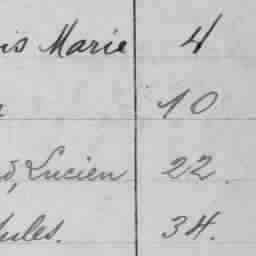 is Marie 4
10
d, Lucien 22.
Jules. 34.